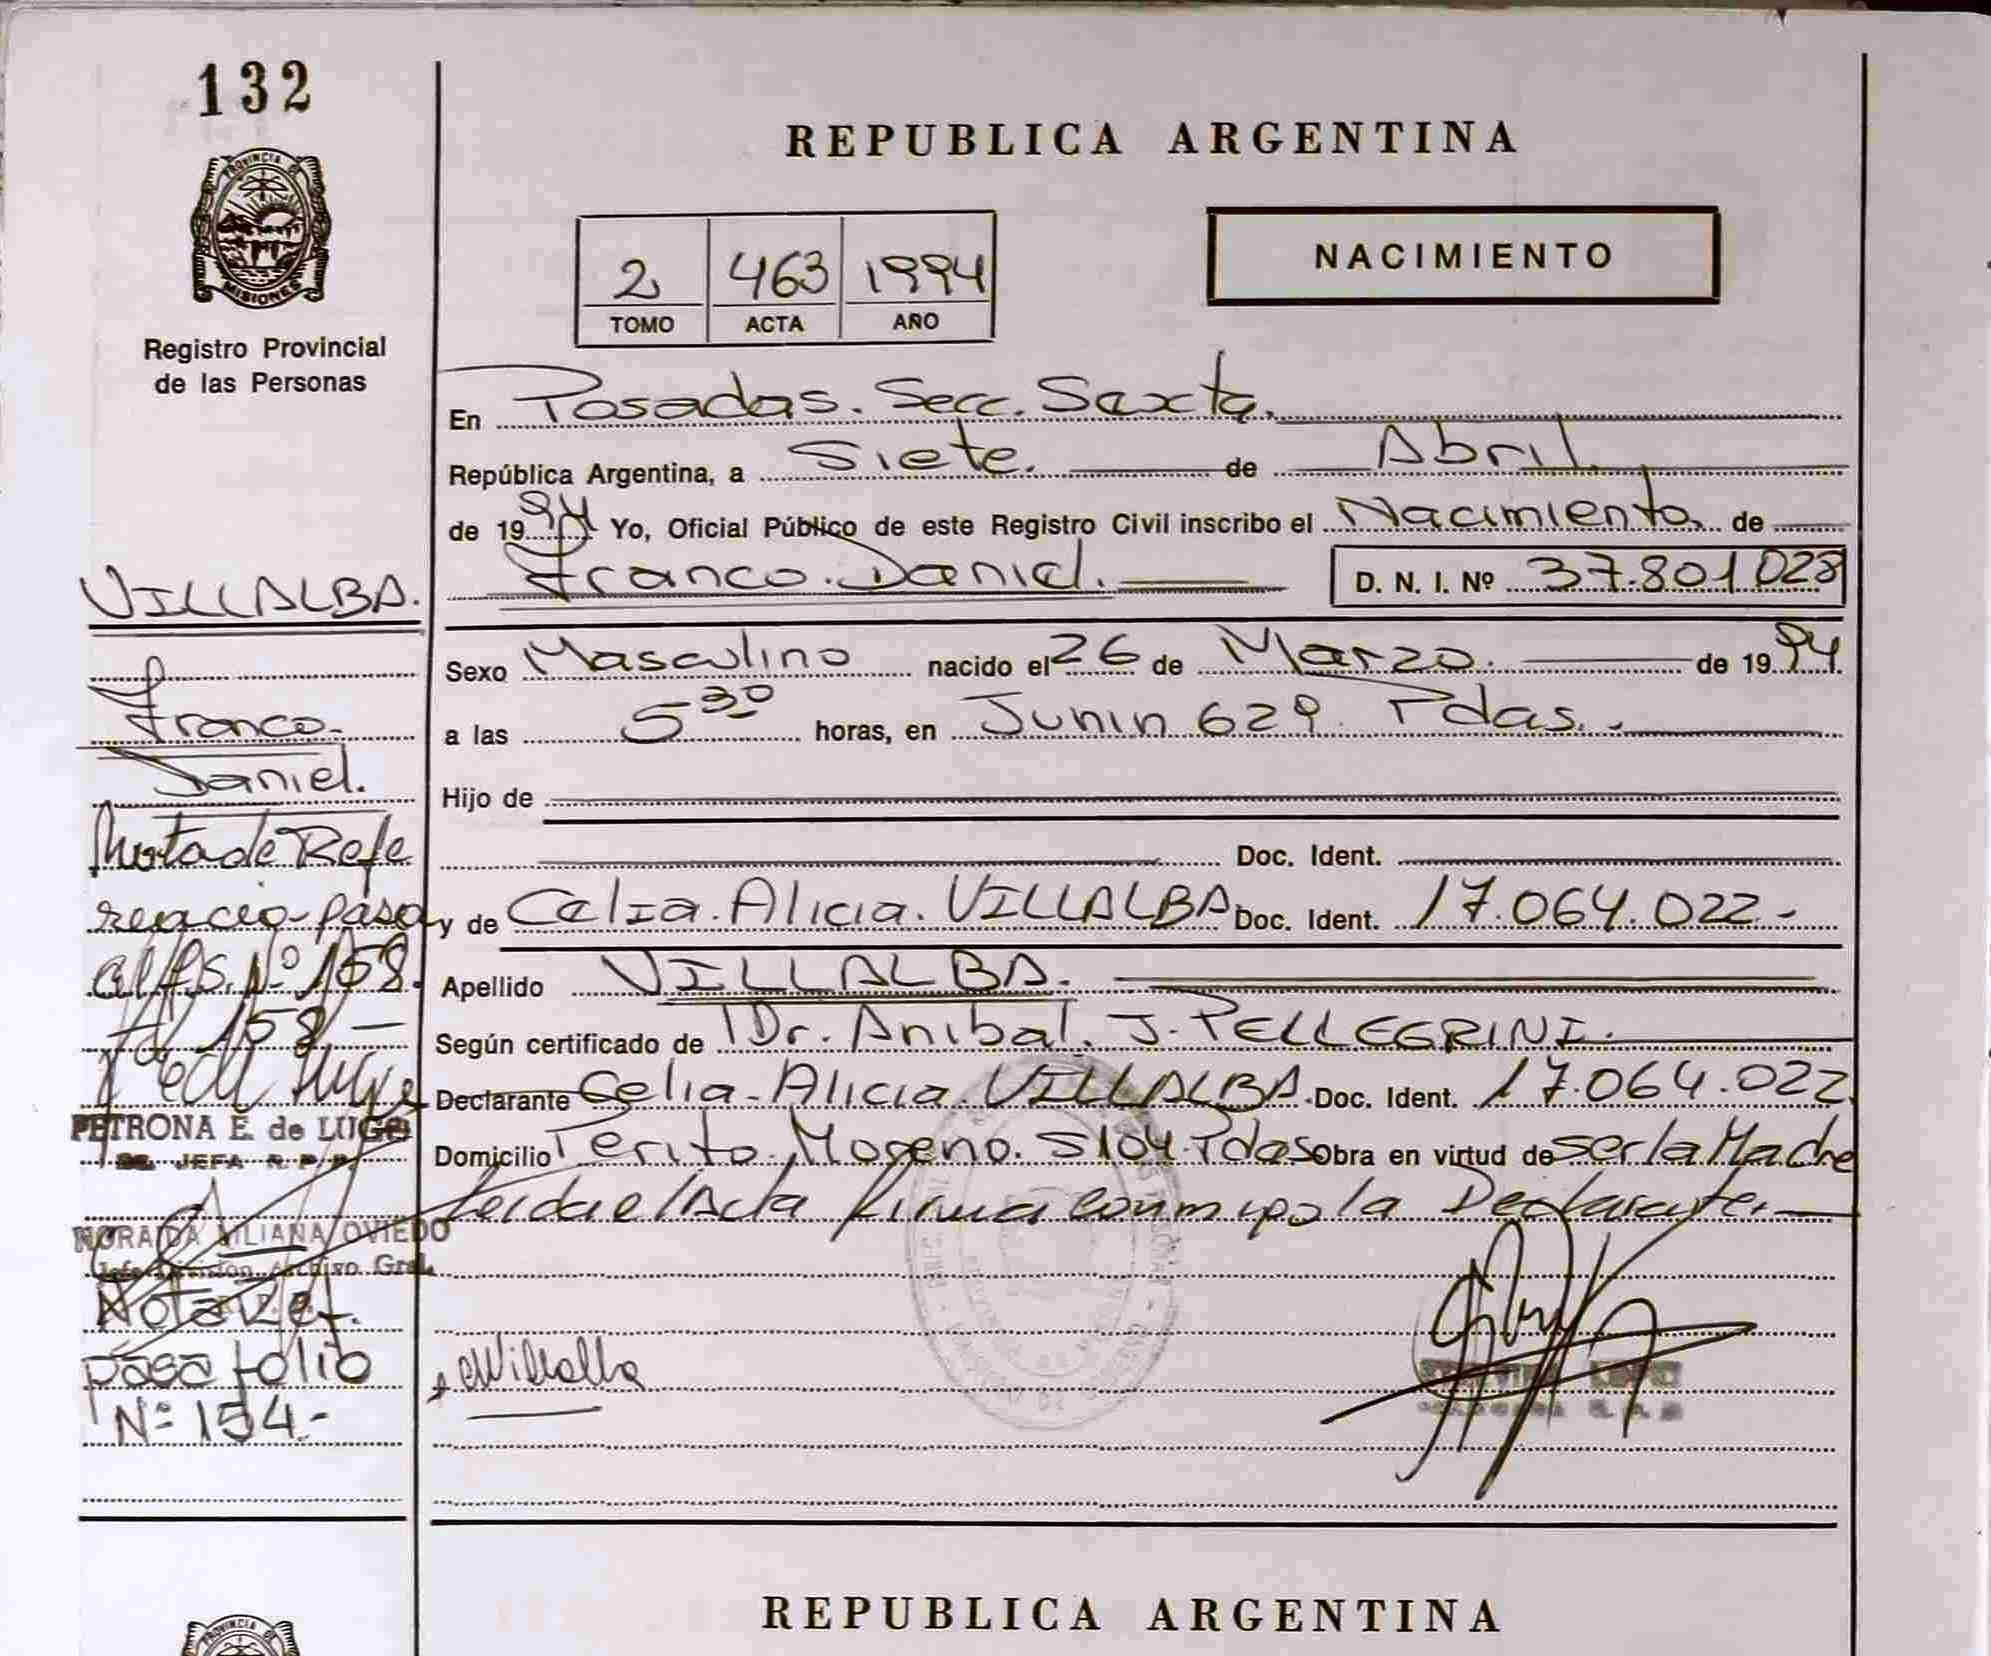 132
PROVINCIA DE
MISIONES
Registro Provincial
de las Personas
VILLALBA.
Franco.
Daniel.
Nota de Refe
rencia pasa
al fs. Nº 158.
158 —
PETRONA E. de LUGO
JEFA R. P. P.
NORA DA LILIANA OVIEDO
Jefe División Archivo Gral.
Nota Ref.
pasa folio
Nº 154.-
REPUBLICA ARGENTINA
2 463 1994
TOMO ACTA AÑO
NACIMIENTO
En Posadas. Secc. Sexta.
República Argentina, a Siete. de Abril.
de 1994 Yo, Oficial Público de este Registro Civil inscribo el Nacimiento de
Franco. Daniel. D. N. I. Nº 37.801.028
Sexo Masculino nacido el 26 de Marzo. de 1994.
a las 5 30 horas, en Junin 629. Pdas.
Hijo de
Doc. Ident.
y de Celia. Alicia. VILLALBA Doc. Ident. 17.064.022.-
Apellido VILLALBA.
Según certificado de Dr. Anibal. J. PELLEGRINI.
Declarante Celia. Alicia. VILLALBA. Doc. Ident. 17.064.022
Domicilio Perito. Moreno. 5104. Pdas Obra en virtud de ser la Madre
Leida el Acta firma conmigo la Declarante.
CVillalba
REPUBLICA ARGENTINA
PROVINCIA DE